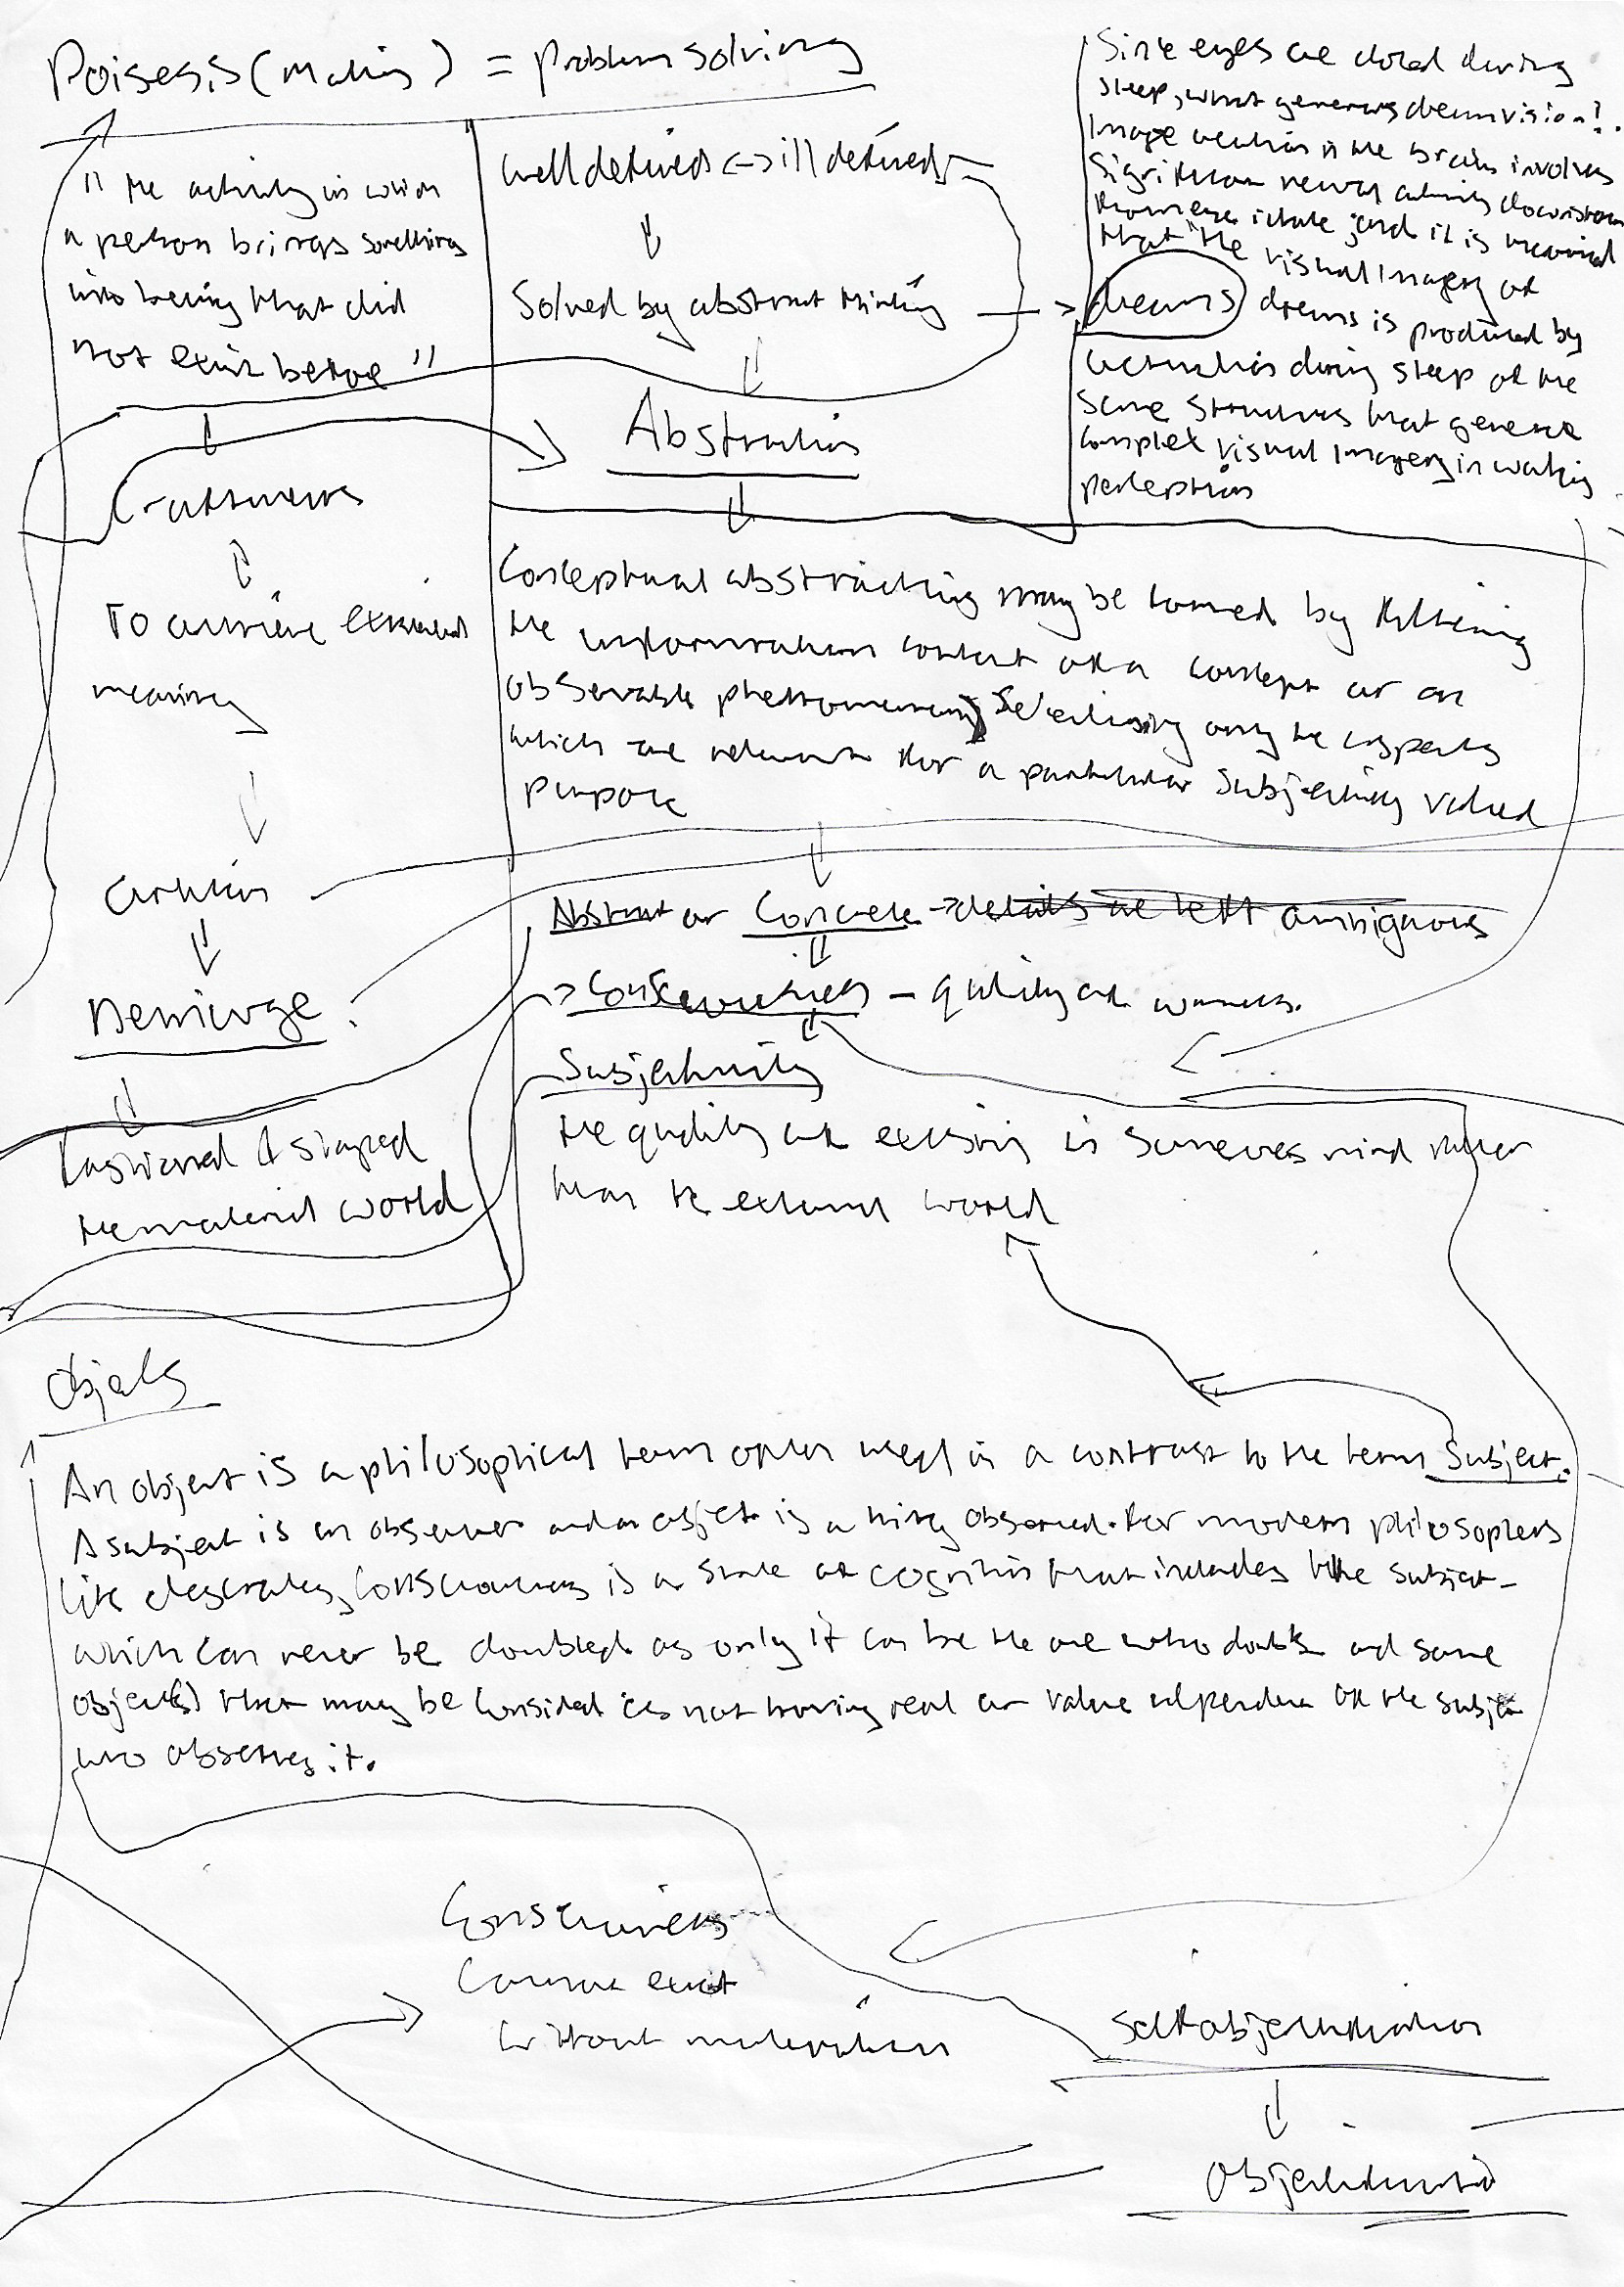 Poisesis (making) = problem solving
"the activity in which
a person brings something
into being that did
not exist before"
Craftsmen
To achieve
meaning
Demiurge
fashioned & shaped
the material world
well defined <-> ill defined
Solved by abstract thinking
Abstraction
Since eyes are closed during
sleep, what generates dream vision?
Image creation in the brain involves
significant neural activity downstream
from eye intake, and it is
that the visual imagery of
dreams dreams is produced by
activation during sleep of the
same structures that generate
complex visual imagery in waking
perception
Conceptual abstractions may be formed by filtering
the information content of a concept or an
observable phenomenon, selecting only the aspects
which are relevant for a particular subjectively valued
purpose
Abstract or Concrete -> details are left ambiguous
-> Consciousness - quality of awareness.
Subjectivity
the quality of existing in someones mind rather
than the external world
Objects
An object is a philosophical term often used in a contrast to the term Subject.
A subject is an observer and an object is a thing observed. For modern philosophers
like descrates, consciousness is a state of cognition that includes the subject -
which can never be doubted as only it can be the one who doubts and some
object(s) that may be considered as not having real or value of the subject
who observes it.
Consciousness
Cannot exist
without
Self objectification